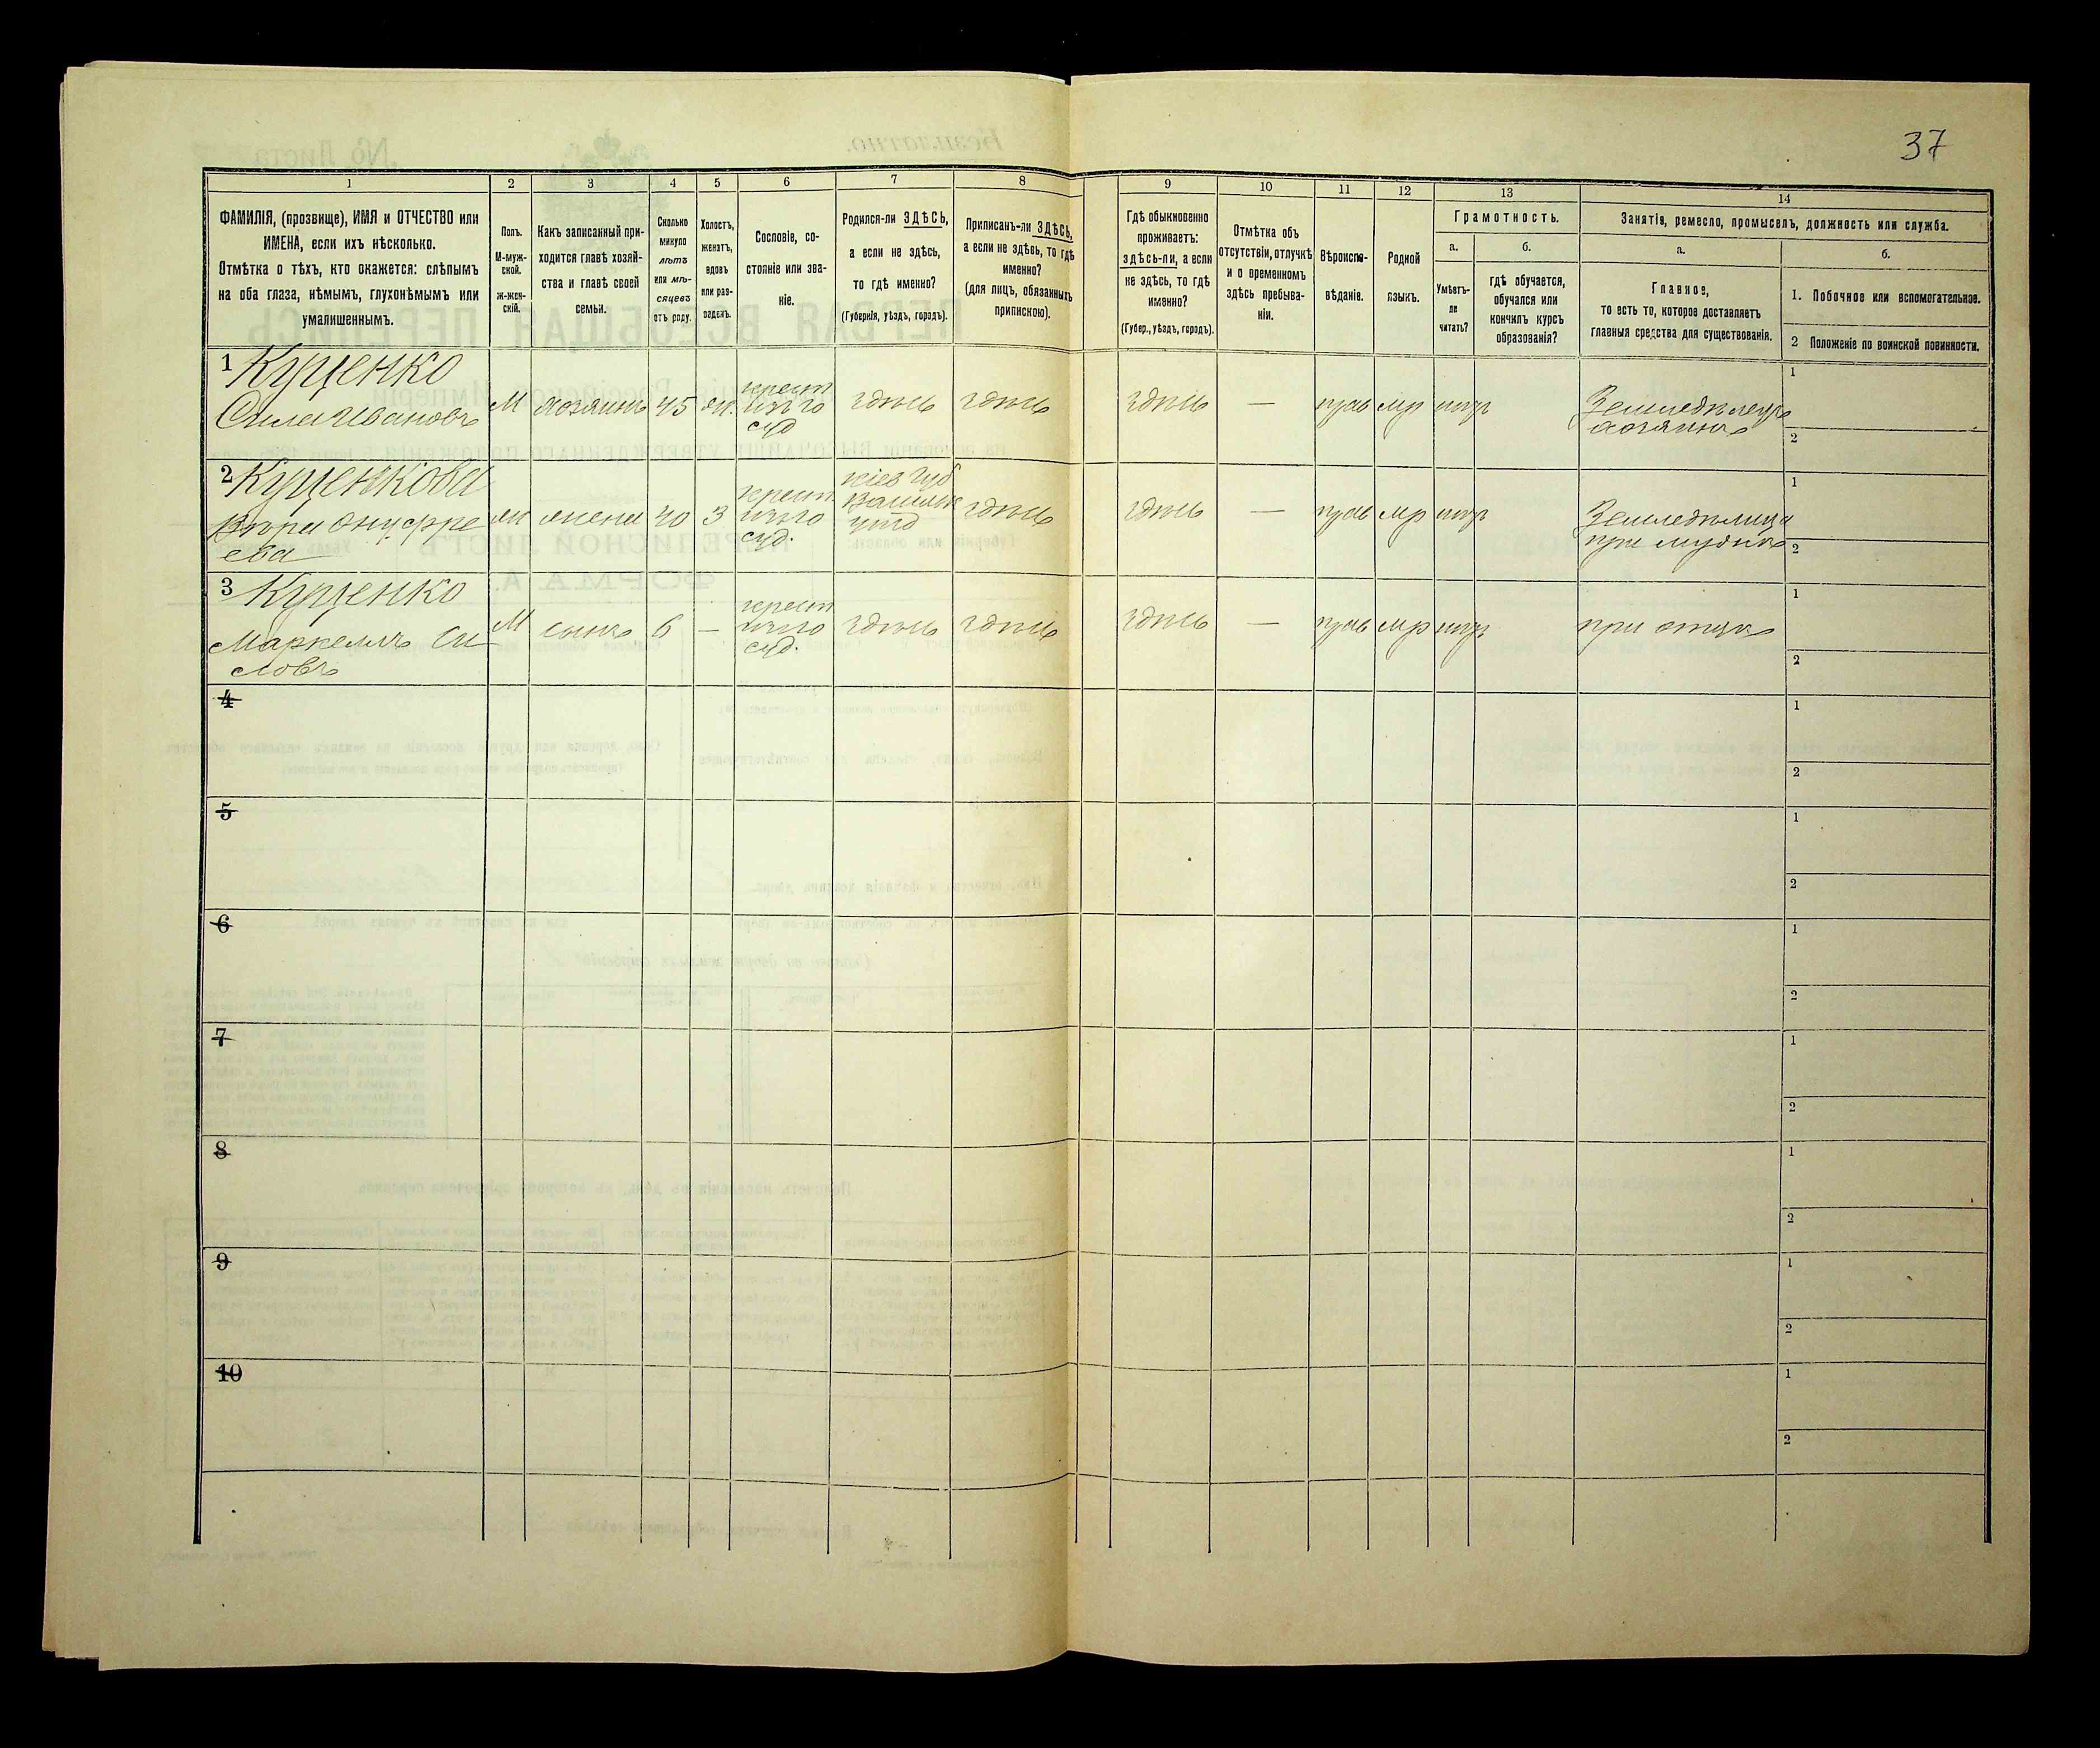 37
1 2 3 4 5 6 7 8 9 10 11 12 13 14
ФАМИЛІЯ, (прозвище), ИМЯ и ОТЧЕСТВО или
ИМЕНА, если ихъ нѣсколько.
Отмѣтка о тѣхъ, кто окажется: слѣпымъ
на оба глаза, нѣмымъ, глухонѣмымъ или
умалишеннымъ.
Полъ.
М-муж-
ской.
Ж-жен-
скій.
Какъ записанный при-
ходится главѣ хозяй-
ства и главѣ своей
семьи.
Сколько
минуло
лѣтъ
или мѣ-
сяцевъ
отъ роду.
Холостъ,
женатъ,
вдовъ
или раз-
веденъ.
Сословіе, со-
стояніе или зва-
ніе.
Родился-ли ЗДѢСЬ,
а если не здѣсь,
то гдѣ именно?
(Губернія, уѣздъ, городъ).
Приписанъ-ли ЗДѢСЬ,
а если не здѣсь, то гдѣ
именно?
(для лицъ, обязанныхъ
припискою).
Гдѣ обыкновенно
проживаетъ:
здѣсь-ли, а если
не здѣсь, то гдѣ
именно?
(Губер., уѣздъ, городъ).
Отмѣтка объ
отсутствіи, отлучкѣ
и о временномъ
здѣсь пребыва-
ніи.
Вѣроиспо-
вѣданіе.
Родной
языкъ.
Грамотность.
а.
Умѣетъ-
ли
читать?
б.
гдѣ обучается,
обучался или
кончилъ курсъ
образованія?
Занятія, ремесло, промыселъ, должность или служба.
а.
Главное,
то есть то, которое доставляетъ
главныя средства для существованія.
б.
1. Побочное или вспомогательное.
2 Положеніе по воинской повинности.
1 Куценко
Сила Ивановъ
М хозяинъ 45 жн.
крест
изъ го
суд
здѣсь здѣсь здѣсь — прав мр нтъ
Земледѣлецъ
хозяинъ
1
2
2 Куценкова
Вѣра Онуфре
ева
жн жена 40 З
крест
изъ го
суд.
Кіев губ
Васильк
уѣзд
здѣсь здѣсь — прав мр нтъ
Земледѣлица
при мужѣ
1
2
3 Куценко
Маркеллъ Си
ловъ
М сынъ 6 —
крест
изъ го
суд.
здѣсь здѣсь здѣсь — прав мр нтъ при отцѣ
1
2
4
1
2
5
1
2
6
1
2
7
1
2
8
1
2
9
1
2
10
1
2